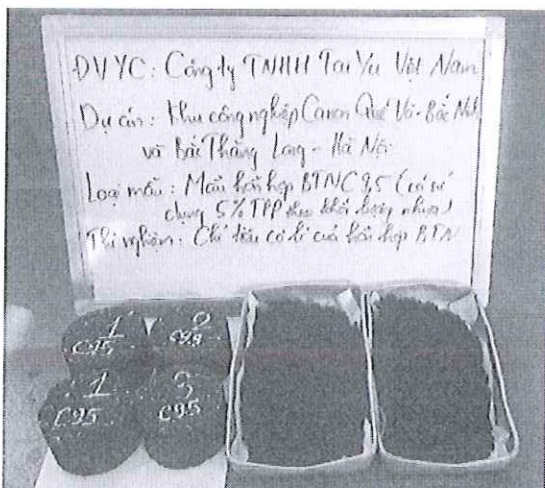 ĐVYC: Công ty TNHH Tai Yu Việt Nam
Dự án: Khu công nghiệp Canon Quế Võ - Bắc Ninh
và Bắc Thăng Long - Hà Nội
Loại mẫu: Mẫu hỗn hợp BTNC 9,5 (có sử
dụng 5% TPP theo khối lượng nhựa)
Thí nghiệm: Chỉ tiêu cơ lí của hỗn hợp BTN
1
C95
2
C95
1
C95
3
C95